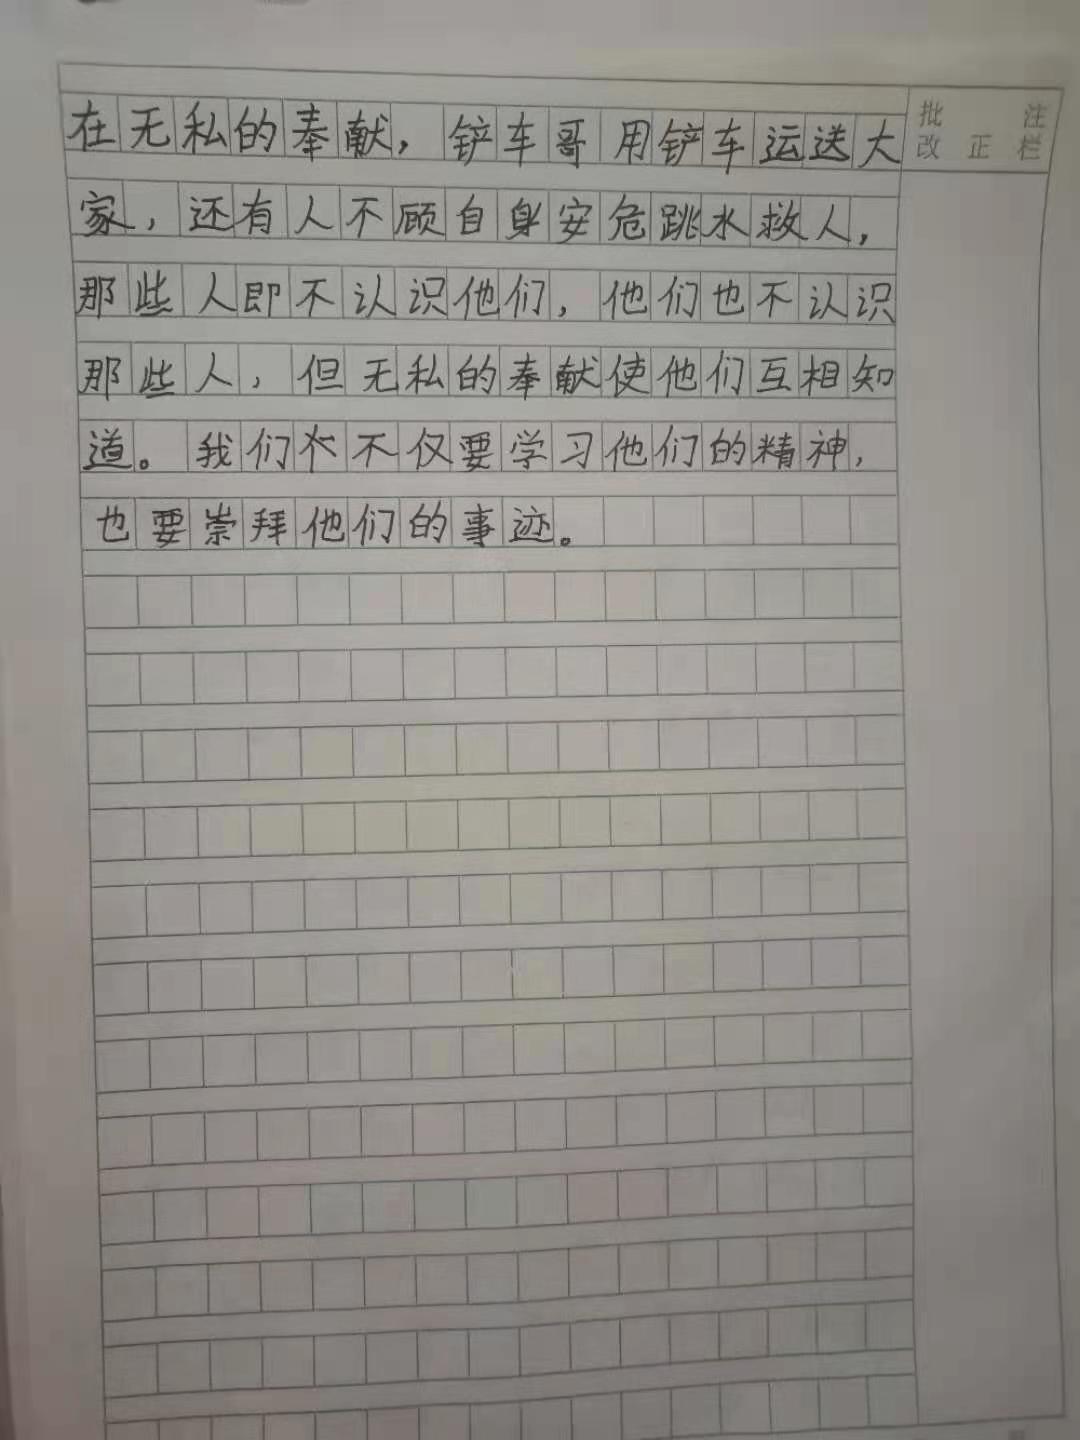 在无私的奉献，铲车哥用铲车运送大
家，还有人不顾自身安危跳水救人，
那些人即不认识他们，他们也不认识
那些人，但无私的奉献使他们互相知
道。我们不仅要学习他们的精神，
也要崇拜他们的事迹。
批 注
改 正 栏